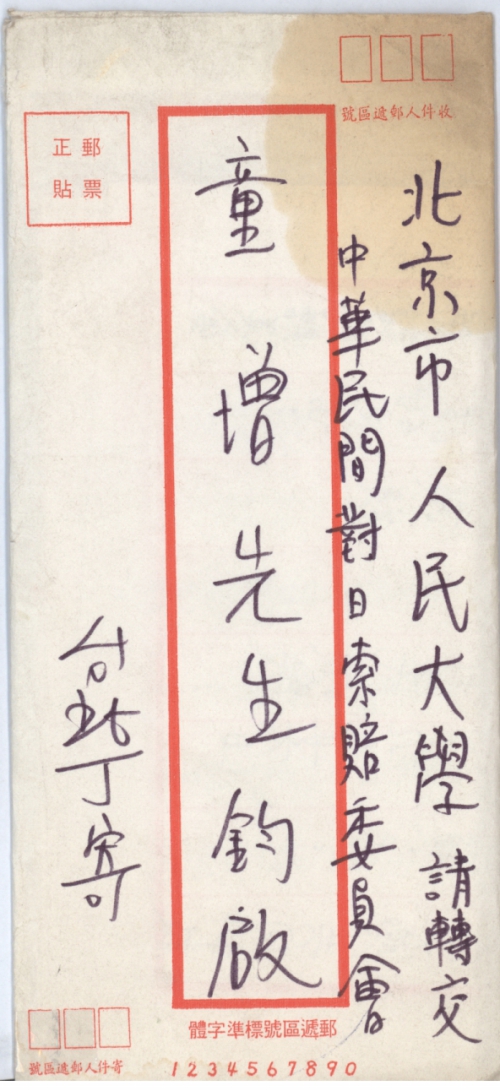 收件人郵遞區號
北京市 人民大學 請轉交
中華民間對日索賠委員會
童增先生鈞啟
郵票
正貼
台北丁寄
郵遞區號標準字體
1234567890
寄件人郵遞區號